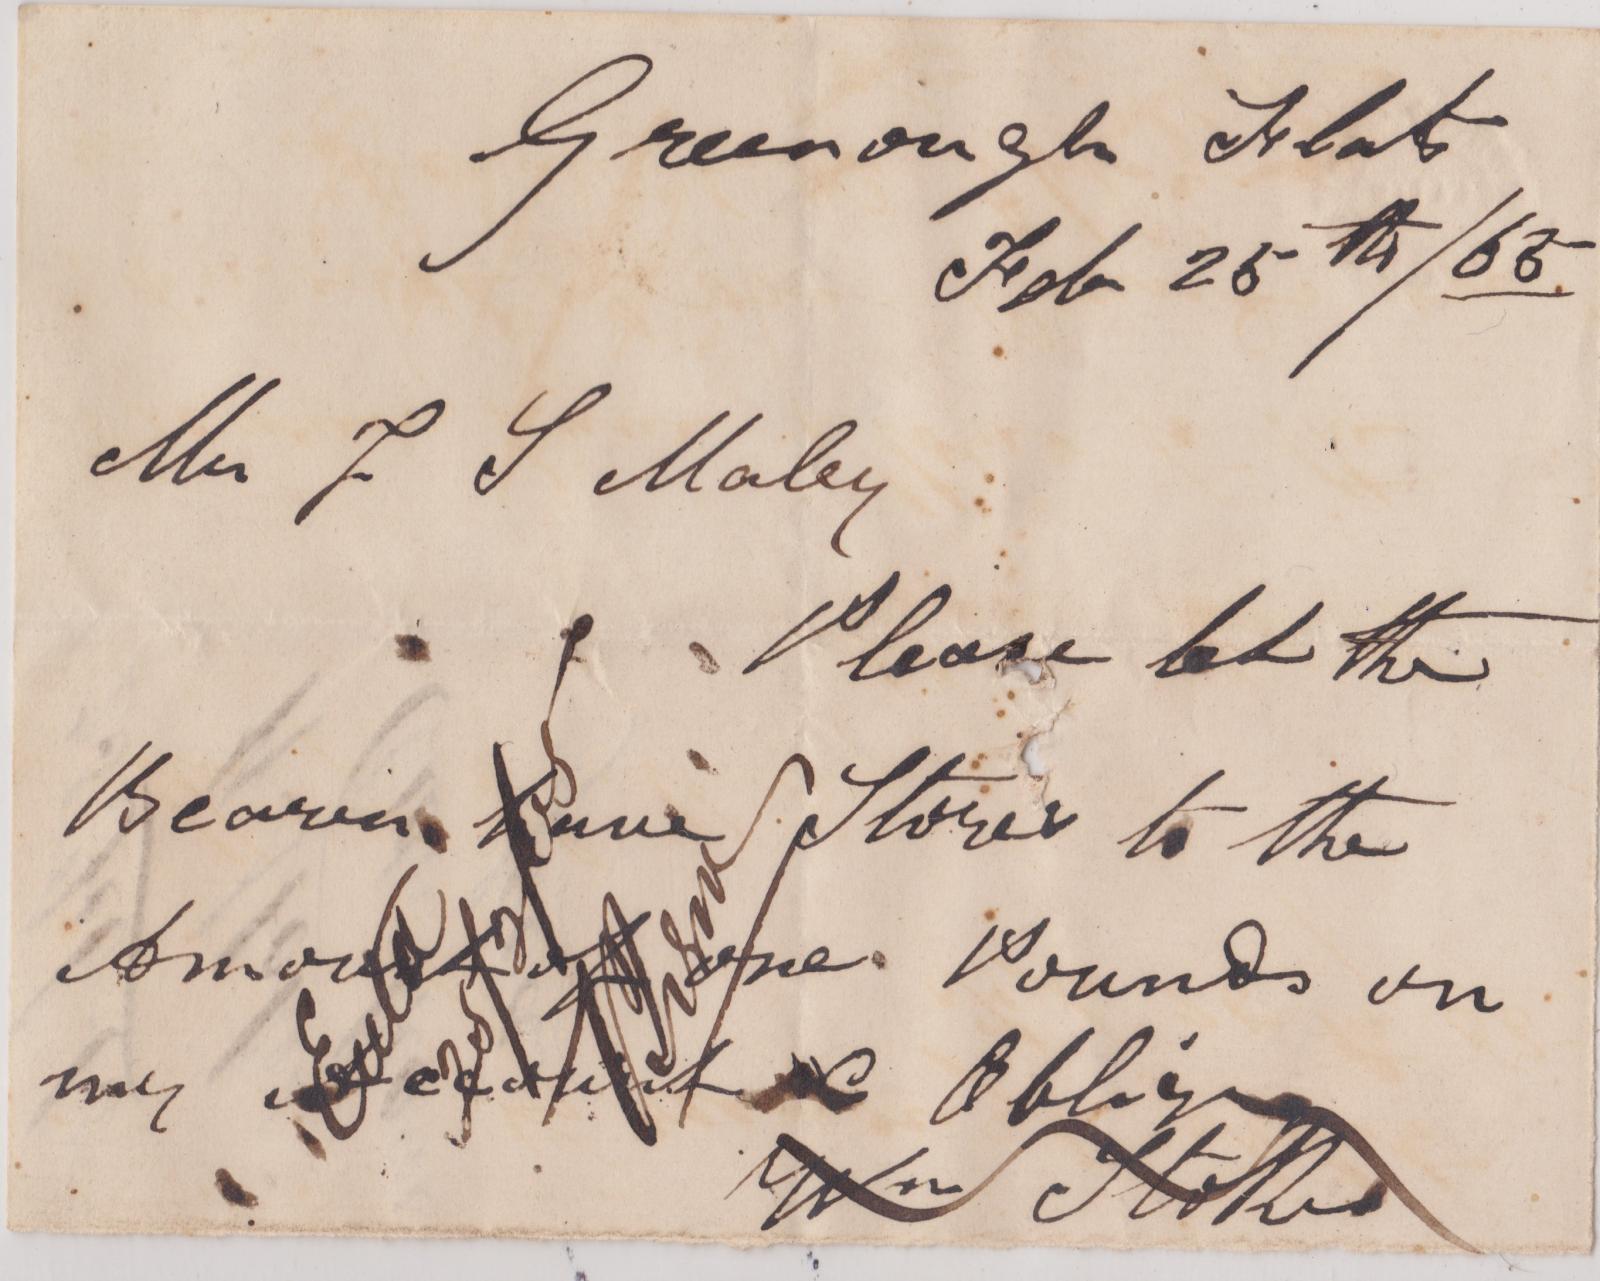 Greenough Flats
Feb 25th/65
Mr J S Maley
Please let the
Bearer have Stores to the
Amount of one Pounds on
my account & Oblige
Wm Stokes